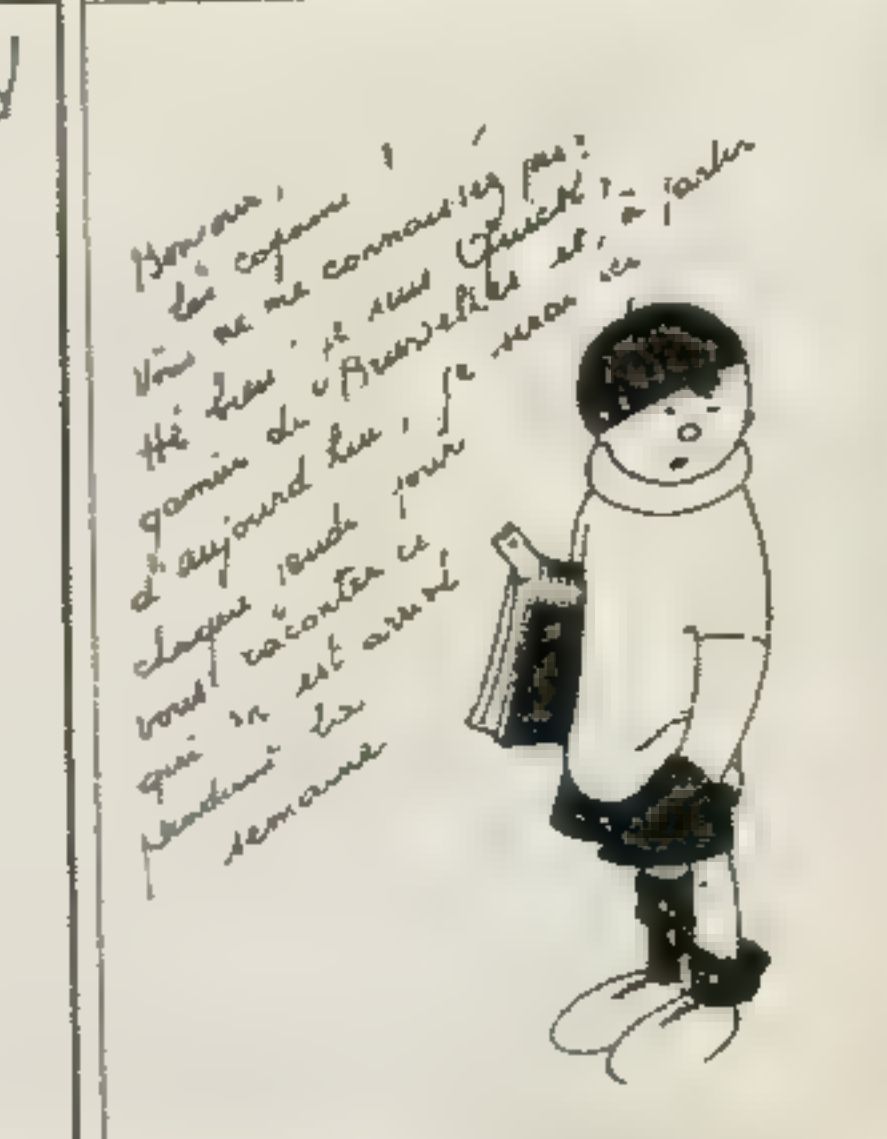 Bonjour,
les copains !
Vous ne me connaissez pas ?
Hé bien, je suis Quick,
gamin de Bruxelles et, à partir
d'aujourd'hui, je serai ici
chaque jeudi pour
vous raconter ce
qui m'est arrivé
pendant la
semaine